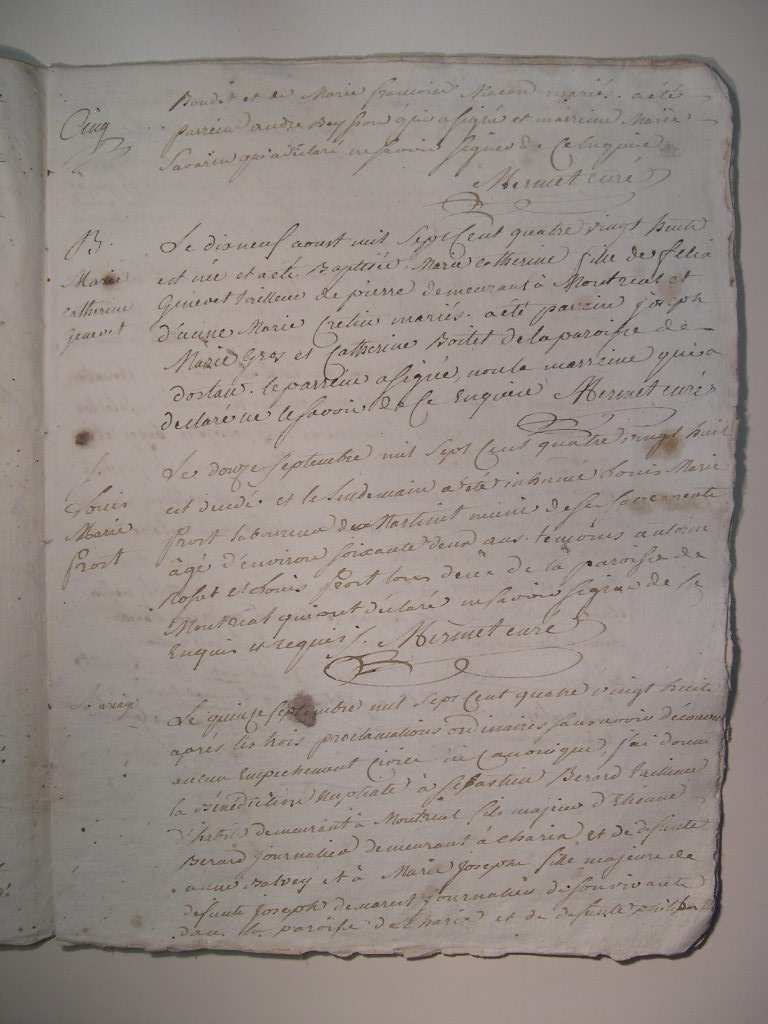 Cinq
Boudet et de Marie françoise Macon mariés. a été
parrein andre Beysson qui a signé et marreine Marie
Savarin qui a déclaré ne savoir signer de ce Enquise
Mermet curé
B.
Marie
Catherine
Genevet
Le dixneuf aoust mil sept Cent quatre vingt huit
est née et a été Baptisée Marie Catherine fille de felix
Genevet tailleur de pierre demeurant à Montreal et
d'anne Marie Cretin mariés. a été parrein joseph
Marie Gros et Catherine Boitet de la paroisse de
dortan. le parrein a signé, non la marreine qui a
declaré ne le savoir de Ce Enquise Mermet curé
Louis
Marie
Prost
Le douze septembre mil sept Cent quatre vingt huit
est decedé et le lendemain a été inhumé Louis Marie
Prost laboureur du Martinet muni de ses sacrements
âgé d'environ soixante deux ans. temoins antoine
et Louis Prost tous deux de la paroisse de
Montreal qui ont déclaré ne savoir signer de ce
Enquis et requis. Mermet curé
Le quinze Septembre mil sept Cent quatre vingt huit
après les trois proclamations ordinaires sans avoir découvert
aucun Empechement Civil ni Canonique, j'ai donné
la Bénédiction Nuptiale à Sebastien Berard tailleur
d'habit demeurant à Montréal fils majeur d'Etienne
Berard journalier demeurant à Charix et de defunte
anne Balvay et à Marie Josephe fille majeure de
defunt Joseph demaret journalier de son vivant
dans la paroisse de Charix et de defunte